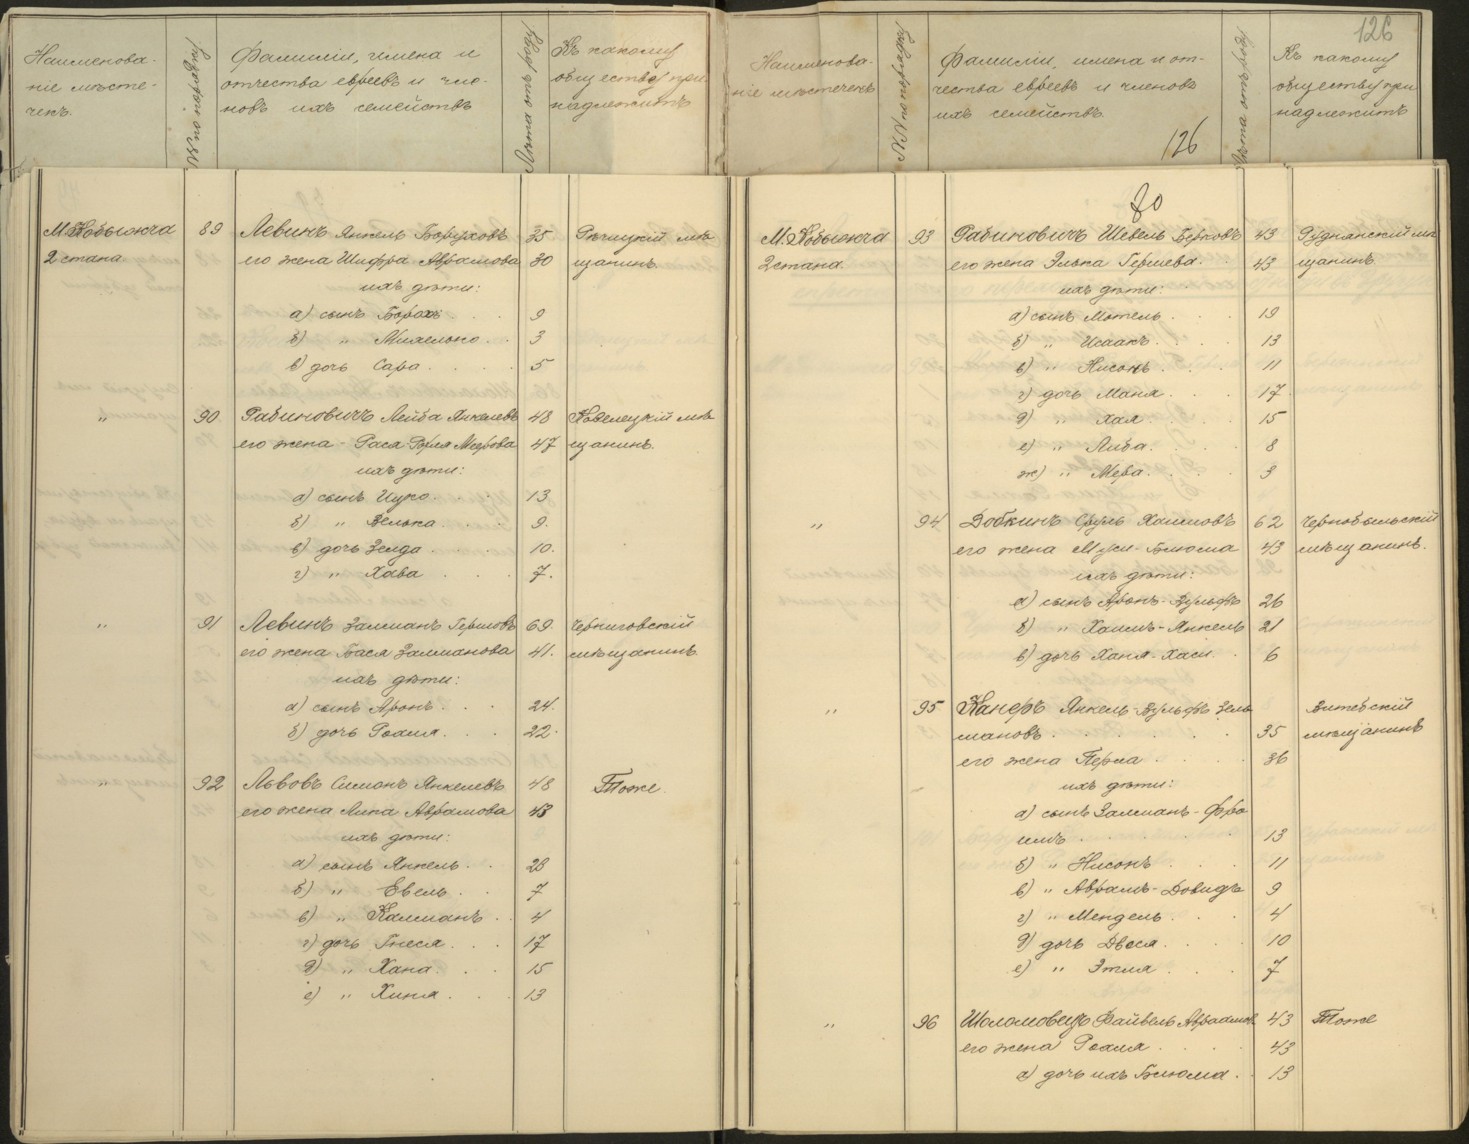 Наименова-
ніе мѣсте-
чекъ.
№ по порядку.
Фамиліи, имена и
отчества евреевъ и чле-
новъ ихъ семействъ
Лѣта отъ роду
Къ какому
обществу при
надлежитъ
М. Кобыжча
2 стана
89 Левинъ Янкель Боруховъ 35 Рѣчицкій мѣ
его жена Шифра Аврамова 30 щанинъ.
ихъ дѣти:
а) сынъ Борохъ 9
б) " 3
в) дочь Сара 5
" 90 Рабиновичъ Лейба Янкелевъ 48 Козелецкій мѣ
его жена - Рася 47 щанинъ.
ихъ дѣти:
а) сынъ Ицко 13
б) " Зелька 9.
в) дочь Зелда 10.
г) " Хава 7.
" 91 Левинъ Залманъ Гершовъ 69 Черниговскій
его жена Бася Залманова 41. мѣщанинъ
ихъ дѣти:
а) сынъ Аронъ 24.
б) дочь Рохля 22.
" 92 Львовъ Симонъ Янкелевъ 48 Тоже.
его жена Лина Аврамова 43
ихъ дѣти:
а) сынъ Янкель 23
б) " Евель 7
в) " Калманъ 4
г) дочь Гнеся 17
д) " Хана 15
е) " Хиня 13
126
Наименова-
ніе мѣстечекъ
№№ по порядку
Фамиліи, имена и от-
чества евреевъ и членовъ
ихъ семействъ.
126
Лѣта отъ роду
Къ какому
обществу при
надлежитъ
М. Кобыжча
2 стана
93 Рабиновичъ Шевель Берковъ 43 Руднянскій мѣ
его жена Элька Гершева 43 щанинъ
ихъ дѣти:
а) сынъ Мотель 19
б) " Исаакъ 13
в) " Нисонъ 11
г) дочь Маня 17
д) " Хая 15
е) " Либа 8
ж) " Мера 3
" 94 Добкинъ Сруль Хаимовъ 62 Чернобыльскій
его жена Муси-Блюма 43 мѣщанинъ.
ихъ дѣти:
а) сынъ Аронъ-Вульфъ 26
б) " Хаимъ-Янкель 21
в) дочь Ханя-Хася 6
" 95 Канеръ Янкель-Вульфъ Зель Витебскій
мановъ 35 мѣщанинъ
его жена Перла 36
ихъ дѣти:
а) сынъ Залманъ-Фро
имъ 13
б) " Нисонъ 11
в) " Аврамъ-Довидъ 9
г) " Мендель 4
д) дочь Двося 10
е) " Этля 7
" 96 Шоломовецъ Файвель Абрамов 43 Тоже
его жена Рохля 43
а) дочь ихъ Блюма 13